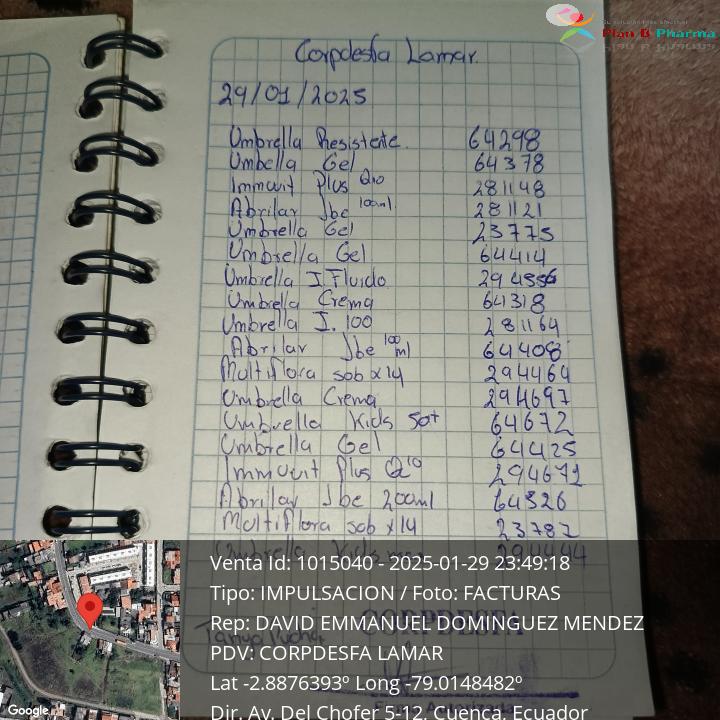 Plan B Pharma
Corpdesfa Lamar.
29/01/2025
Umbrella Resistente. 64298
Umbella Gel 64378
Immuvit Plus Q10 281148
Abrilar Jbe 100ml. 281121
Umbrella Gel 23775
Umbrella Gel 64414
Umbrella I. Fluido
Umbrella Crema 64318
Umbrella I. 100 281164
Abrilar Jbe 100 ml 64408
Multiflora sob x14 294464
Umbrella Crema 294697
Umbrella Kids 50+ 64672
Umbrella Gel 64425
Immuvit Plus Q10 294671
Abrilar Jbe 200ml 64326
Multiflora sob x14 23782
Umbrella Kids 294444
Venta Id: 1015040 - 2025-01-29 23:49:18
Tipo: IMPULSACION / Foto: FACTURAS
Rep: DAVID EMMANUEL DOMINGUEZ MENDEZ
CORPDESFA
PDV: CORPDESFA LAMAR
Lat -2.8876393º Long -79.0148482º
Dir. Av. Del Chofer 5-12, Cuenca, Ecuador
Google